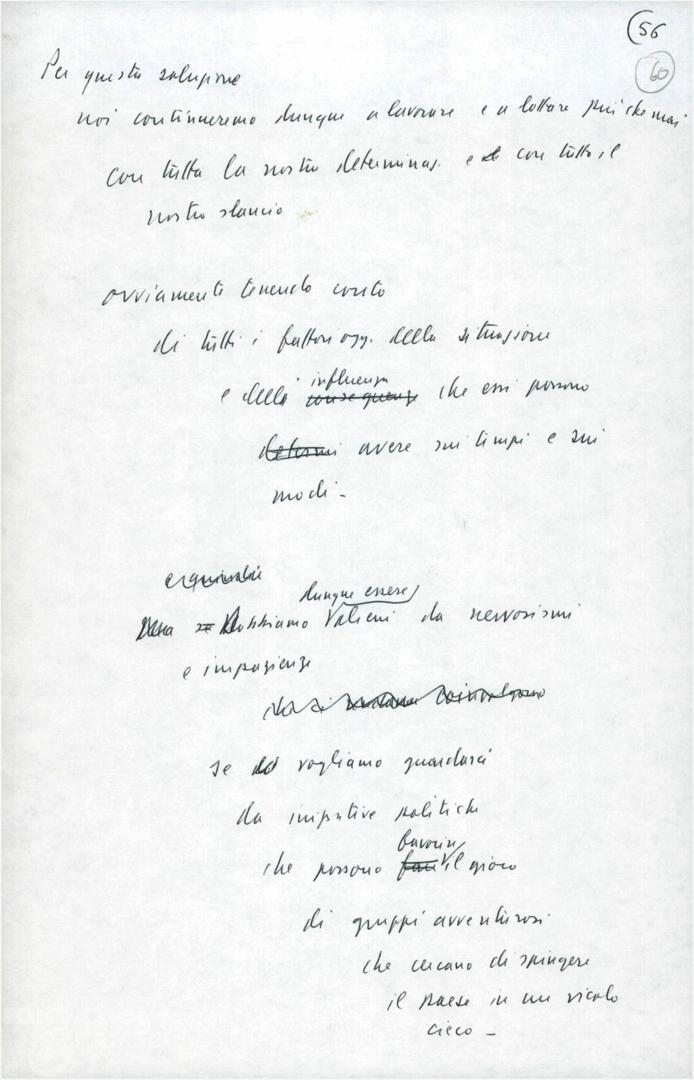 56
60
Per questa soluzione
noi continueremo dunque a lavorare e a lottare più che mai
con tutta la nostra determinaz. e con tutto il
nostro slancio
ovviamente tenendo conto
di tutti i fattori ogg. della situazione
influenza
e della conseguenza che essi possono
determi avere sui tempi e sui
modi -
dunque essere
Dobbiamo alieni da nervosismi
e impazienze
se vogliamo guardarci
da iniziative politiche
favorire
che possono fare il gioco
di gruppi avventurosi
che cercano di spingere
il paese in un vicolo
cieco -